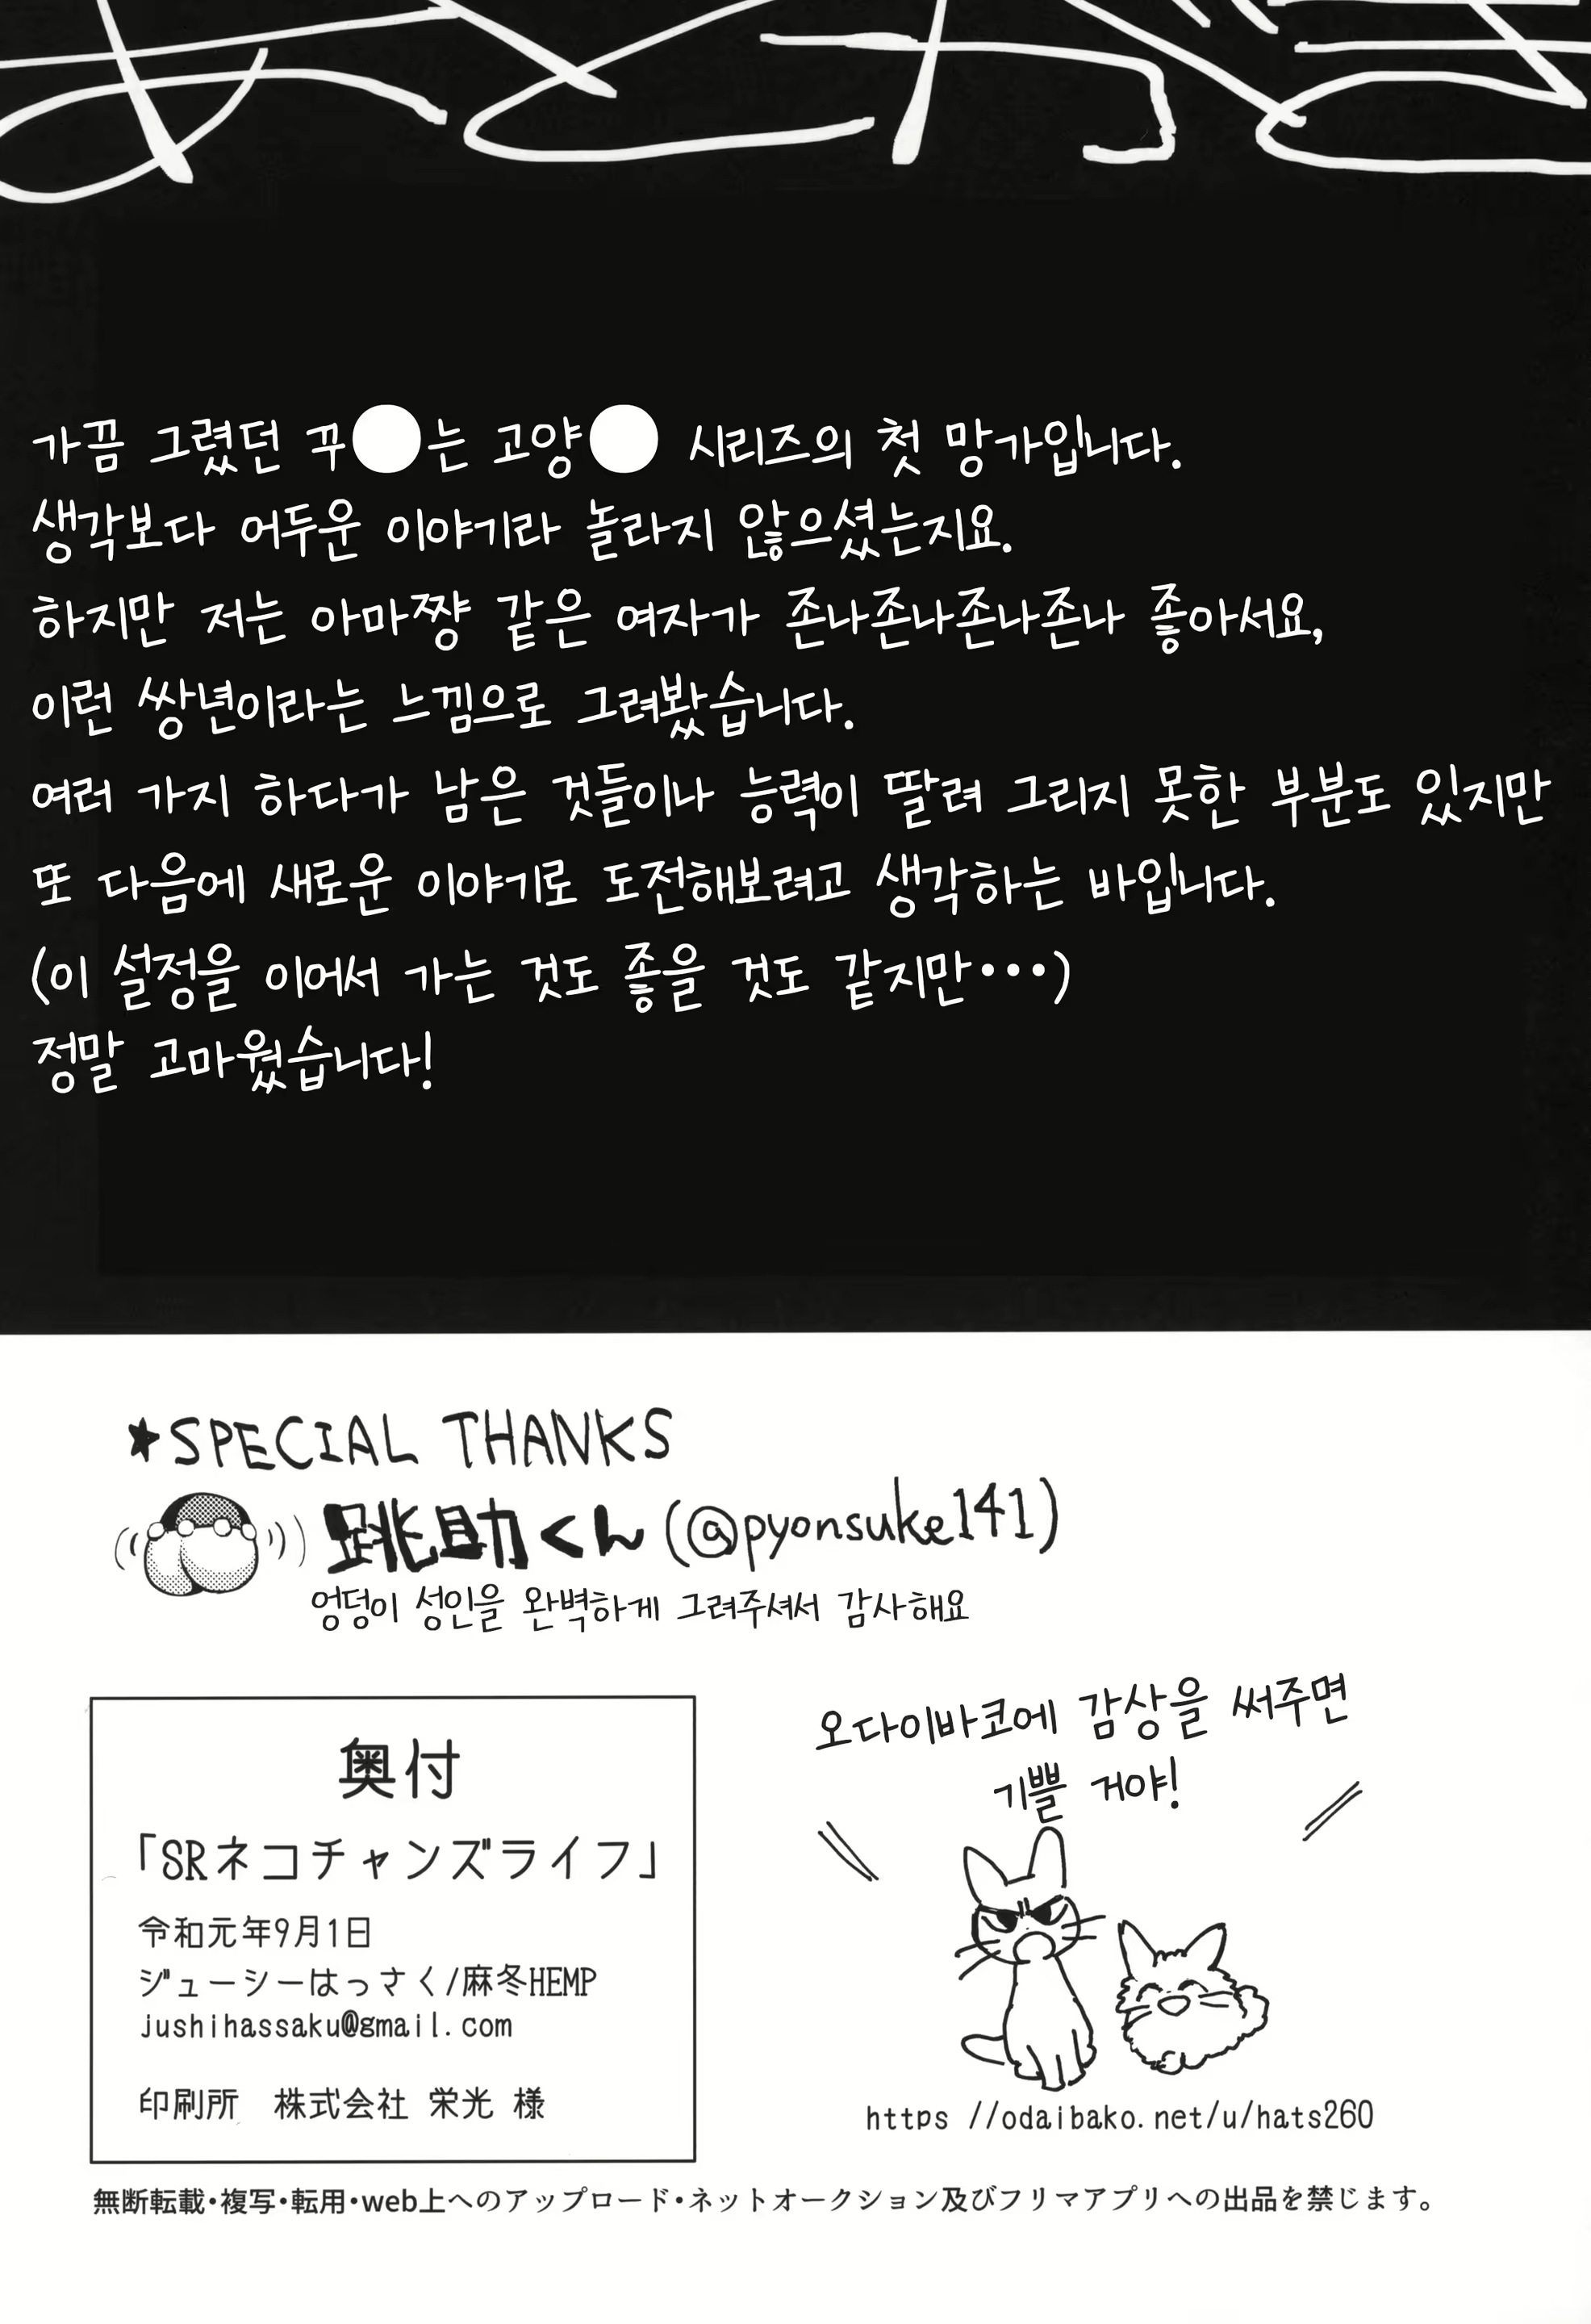 가끔 그렸던 꾸●는 고양● 시리즈의 첫 망가입니다.
생각보다 어두운 이야기라 놀라지 않으셨는지요.
하지만 저는 아마쨩 같은 여자가 존나존나존나존나 좋아서요,
이런 쌍년이라는 느낌으로 그려봤습니다.
여러 가지 하다가 남은 것들이나 능력이 딸려 그리지 못한 부분도 있지만
또 다음에 새로운 이야기로 도전해보려고 생각하는 바입니다.
(이 설정을 이어서 가는 것도 좋을 것도 같지만···)
정말 고마웠습니다!
★SPECIAL THANKS
跳助くん(@pyonsuke141)
엉덩이 성인을 완벽하게 그려주셔서 감사해요
오다이바코에 감상을 써주면
기쁠 거야!
https //odaibako.net/u/hats260
奥付
「SRネコチャンズライフ」
令和元年9月1日
ジューシーはっさく/麻冬HEMP
jushihassaku@gmail.com
印刷所 株式会社 栄光 様
無断転載・複写・転用・web上へのアップロード・ネットオークション及びフリマアプリへの出品を禁じます。